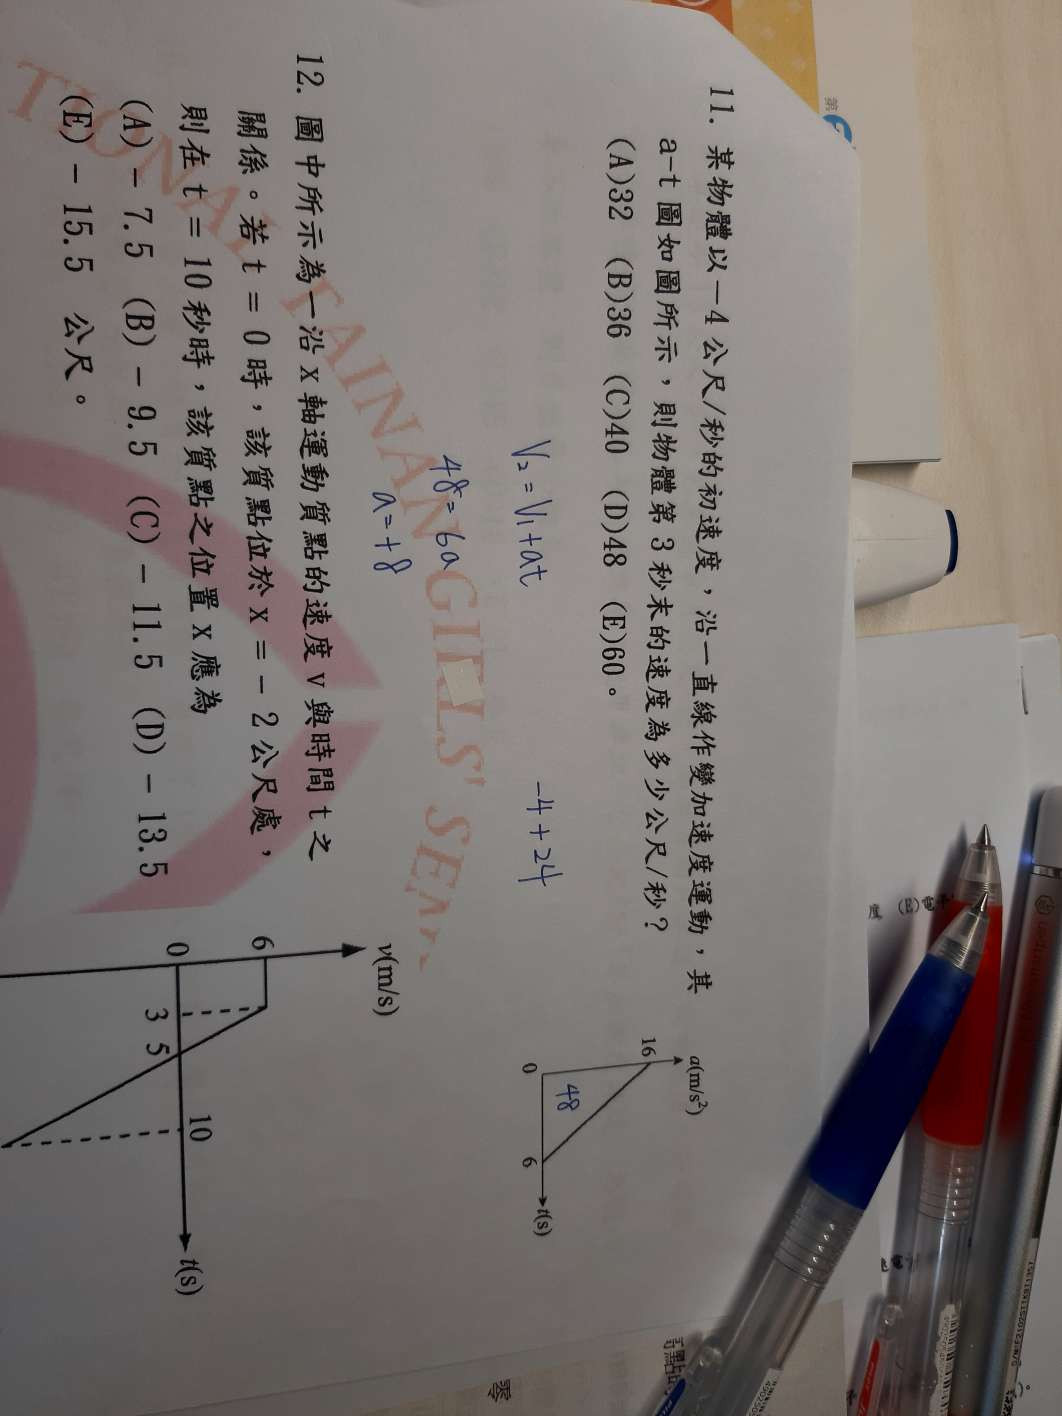 11. 某物體以－4公尺/秒的初速度，沿一直線作變加速度運動，其
a-t圖如圖所示，則物體第3秒末的速度為多少公尺/秒？
(A)32 (B)36 (C)40 (D)48 (E)60。
a(m/s²)
16
48
0
6
t(s)
V₂=V₁+at
-4+24
48=6a
a=+8
12. 圖中所示為一沿x軸運動質點的速度v與時間t之
關係。若t＝0時，該質點位於x＝－2公尺處，
則在t＝10秒時，該質點之位置x應為
(A)－7.5 (B)－9.5 (C)－11.5 (D)－13.5
(E)－15.5 公尺。
v(m/s)
6
0
3
5
10
t(s)
TIONAL TAINAN GIRLS' SEN
度 (E)電子
第
零